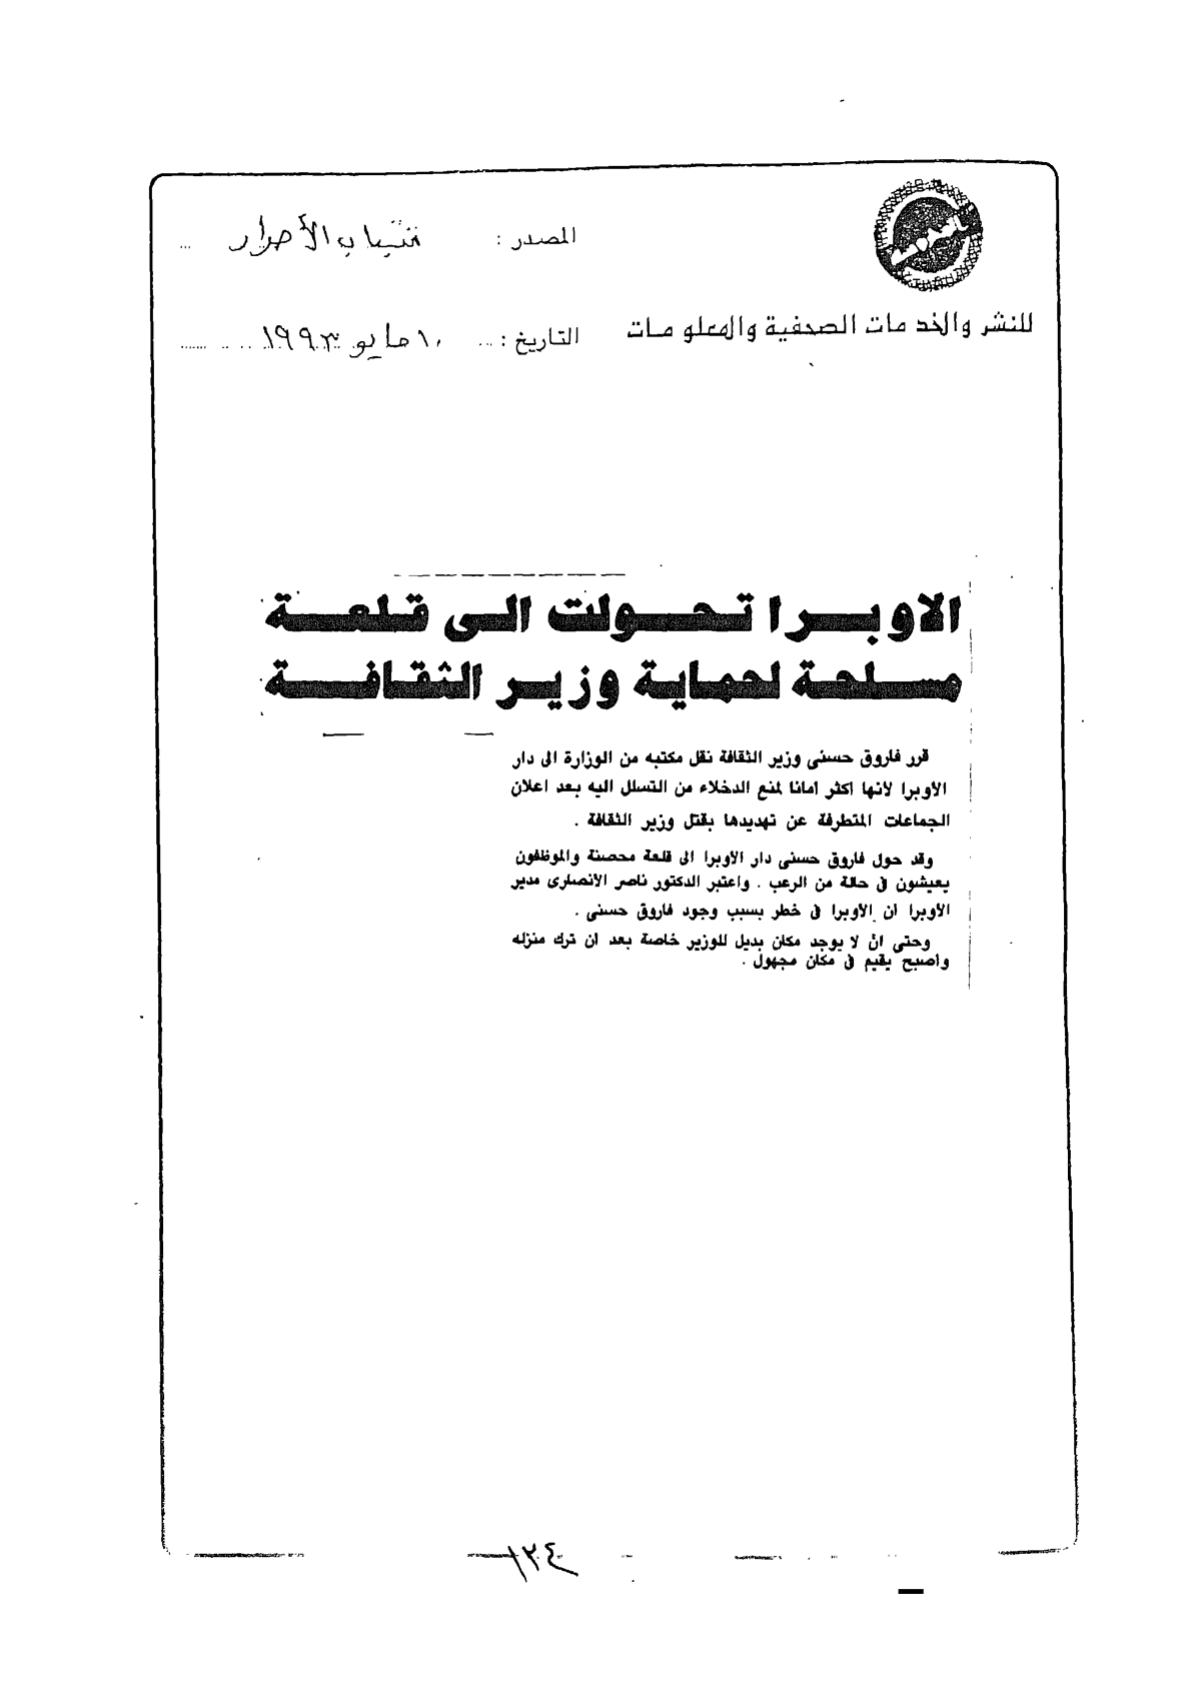 المصدر : شباب الأحرار
للنشر والخدمات الصحفية والمعلومات
التاريخ : ١٠ مايو ١٩٩٣
الاوبرا تحولت الى قلعة
مسلحة لحماية وزير الثقافة
قرر فاروق حسنى وزير الثقافة نقل مكتبه من الوزارة الى دار
الأوبرا لأنها اكثر امانا لمنع الدخلاء من التسلل اليه بعد اعلان
الجماعات المتطرفة عن تهديدها بقتل وزير الثقافة .
وقد حول فاروق حسنى دار الاوبرا الى قلعة محصنة والموظفون
يعيشون فى حالة من الرعب . واعتبر الدكتور ناصر الانصارى مدير
الأوبرا ان الأوبرا فى خطر بسبب وجود فاروق حسنى .
وحتى ان لا يوجد مكان بديل للوزير خاصة بعد ان ترك منزله
واصبح يقيم فى مكان مجهول .
١٢٤